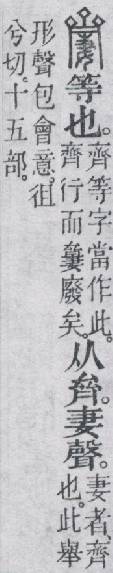 等也。齊等字當作此。齊行而廢矣。从𠫼。妻聲。妻者、齊也。此舉
形聲包會意。徂兮切。十五部。